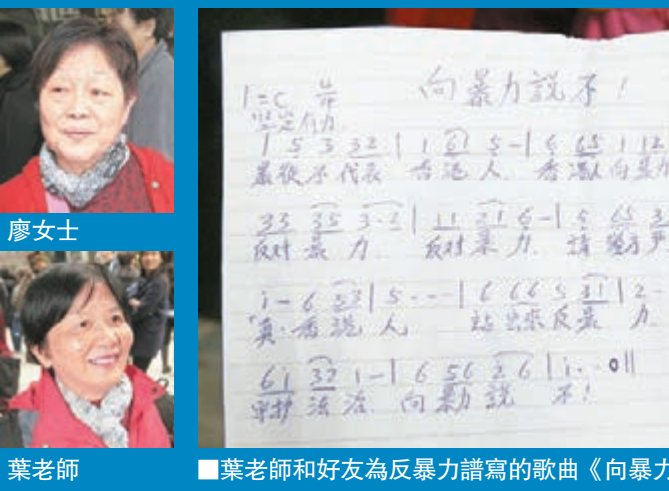 廖女士
葉老師
1=C 4/4 向暴力說不!
堅定有力
1 5 3 32 | 1 61 5 - | 6 65 1 12
暴徒不代表 香港人. 香港人向暴力
33 35 3·2 | 11 21 6 - | 5 65 3
反对暴力. 反对暴力. 請 警方 严
i - 6 53 | 5 - - - | 6 66 5 31 | 2 -
「真·香港人 站出來反暴力.
6i 32 1 - | 6 56 26 | i - - 0 ||
守护法治. 向暴力說 不!
■葉老師和好友為反暴力譜寫的歌曲《向暴力